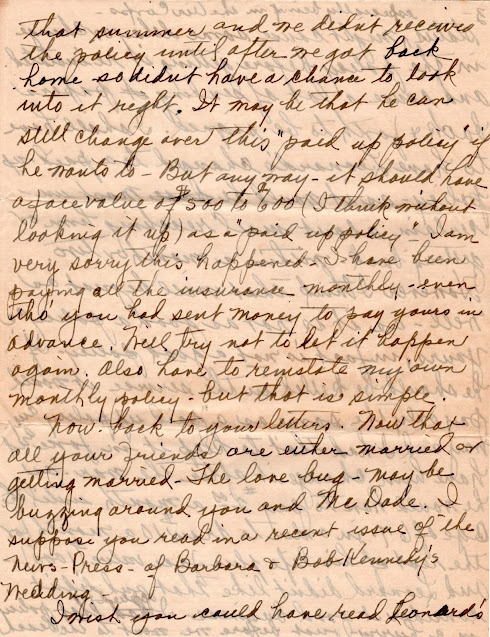 that summer and we didn't receive
the policy until after we got back
home so didn't have a chance to look
into it right. It may be that he can
still change over this "paid up policy" if
he wants to - But any way - it should have
a face value of $500 to $600 (I think without
looking it up) as a "paid up policy" - I am
very sorry this happened - I have been
paying all the insurance monthly - even
tho' you had sent money to pay yours in
advance. Will try not to let it happen
again. Also have to reinstate my own
monthly policy - but that is simple.
Now - back to your letters. Now that
all your friends are either married or
getting married - The love bug - may be
buzzing around you and Mc Dade. I
suppose you read in a recent issue of the
News-Press - of Barbara & Bob Kennedy's
Wedding -
I wish you could have read Leonard's